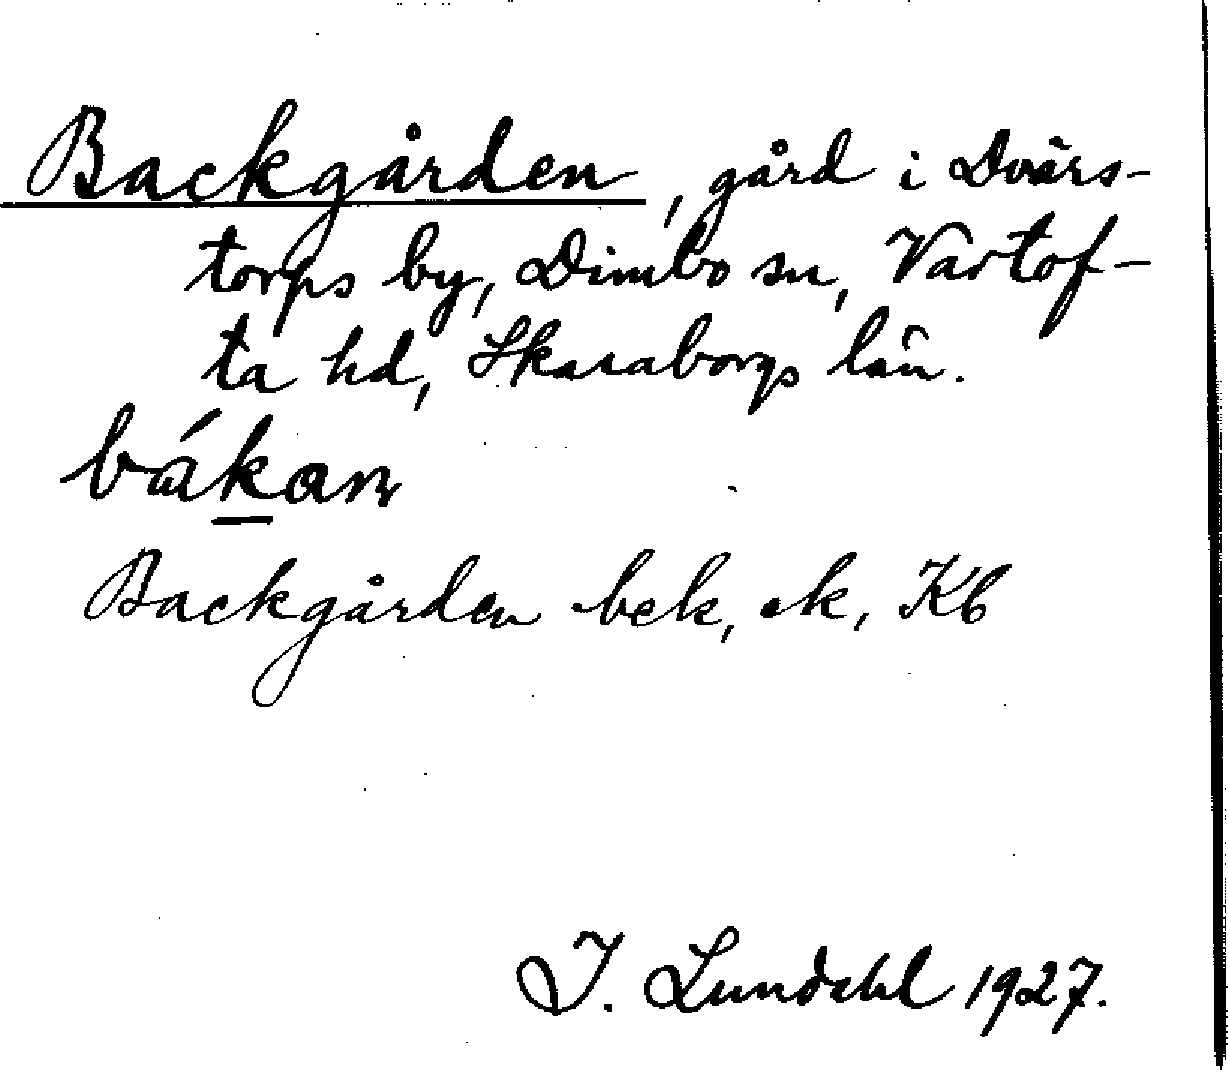 Backgården, gård i Dvärs-
torps by, Dimbo sn, Vartof-
ta hd, Skaraborgs län.
bákan
Backgården bek, ek, Kb
I. Lundahl 1927.